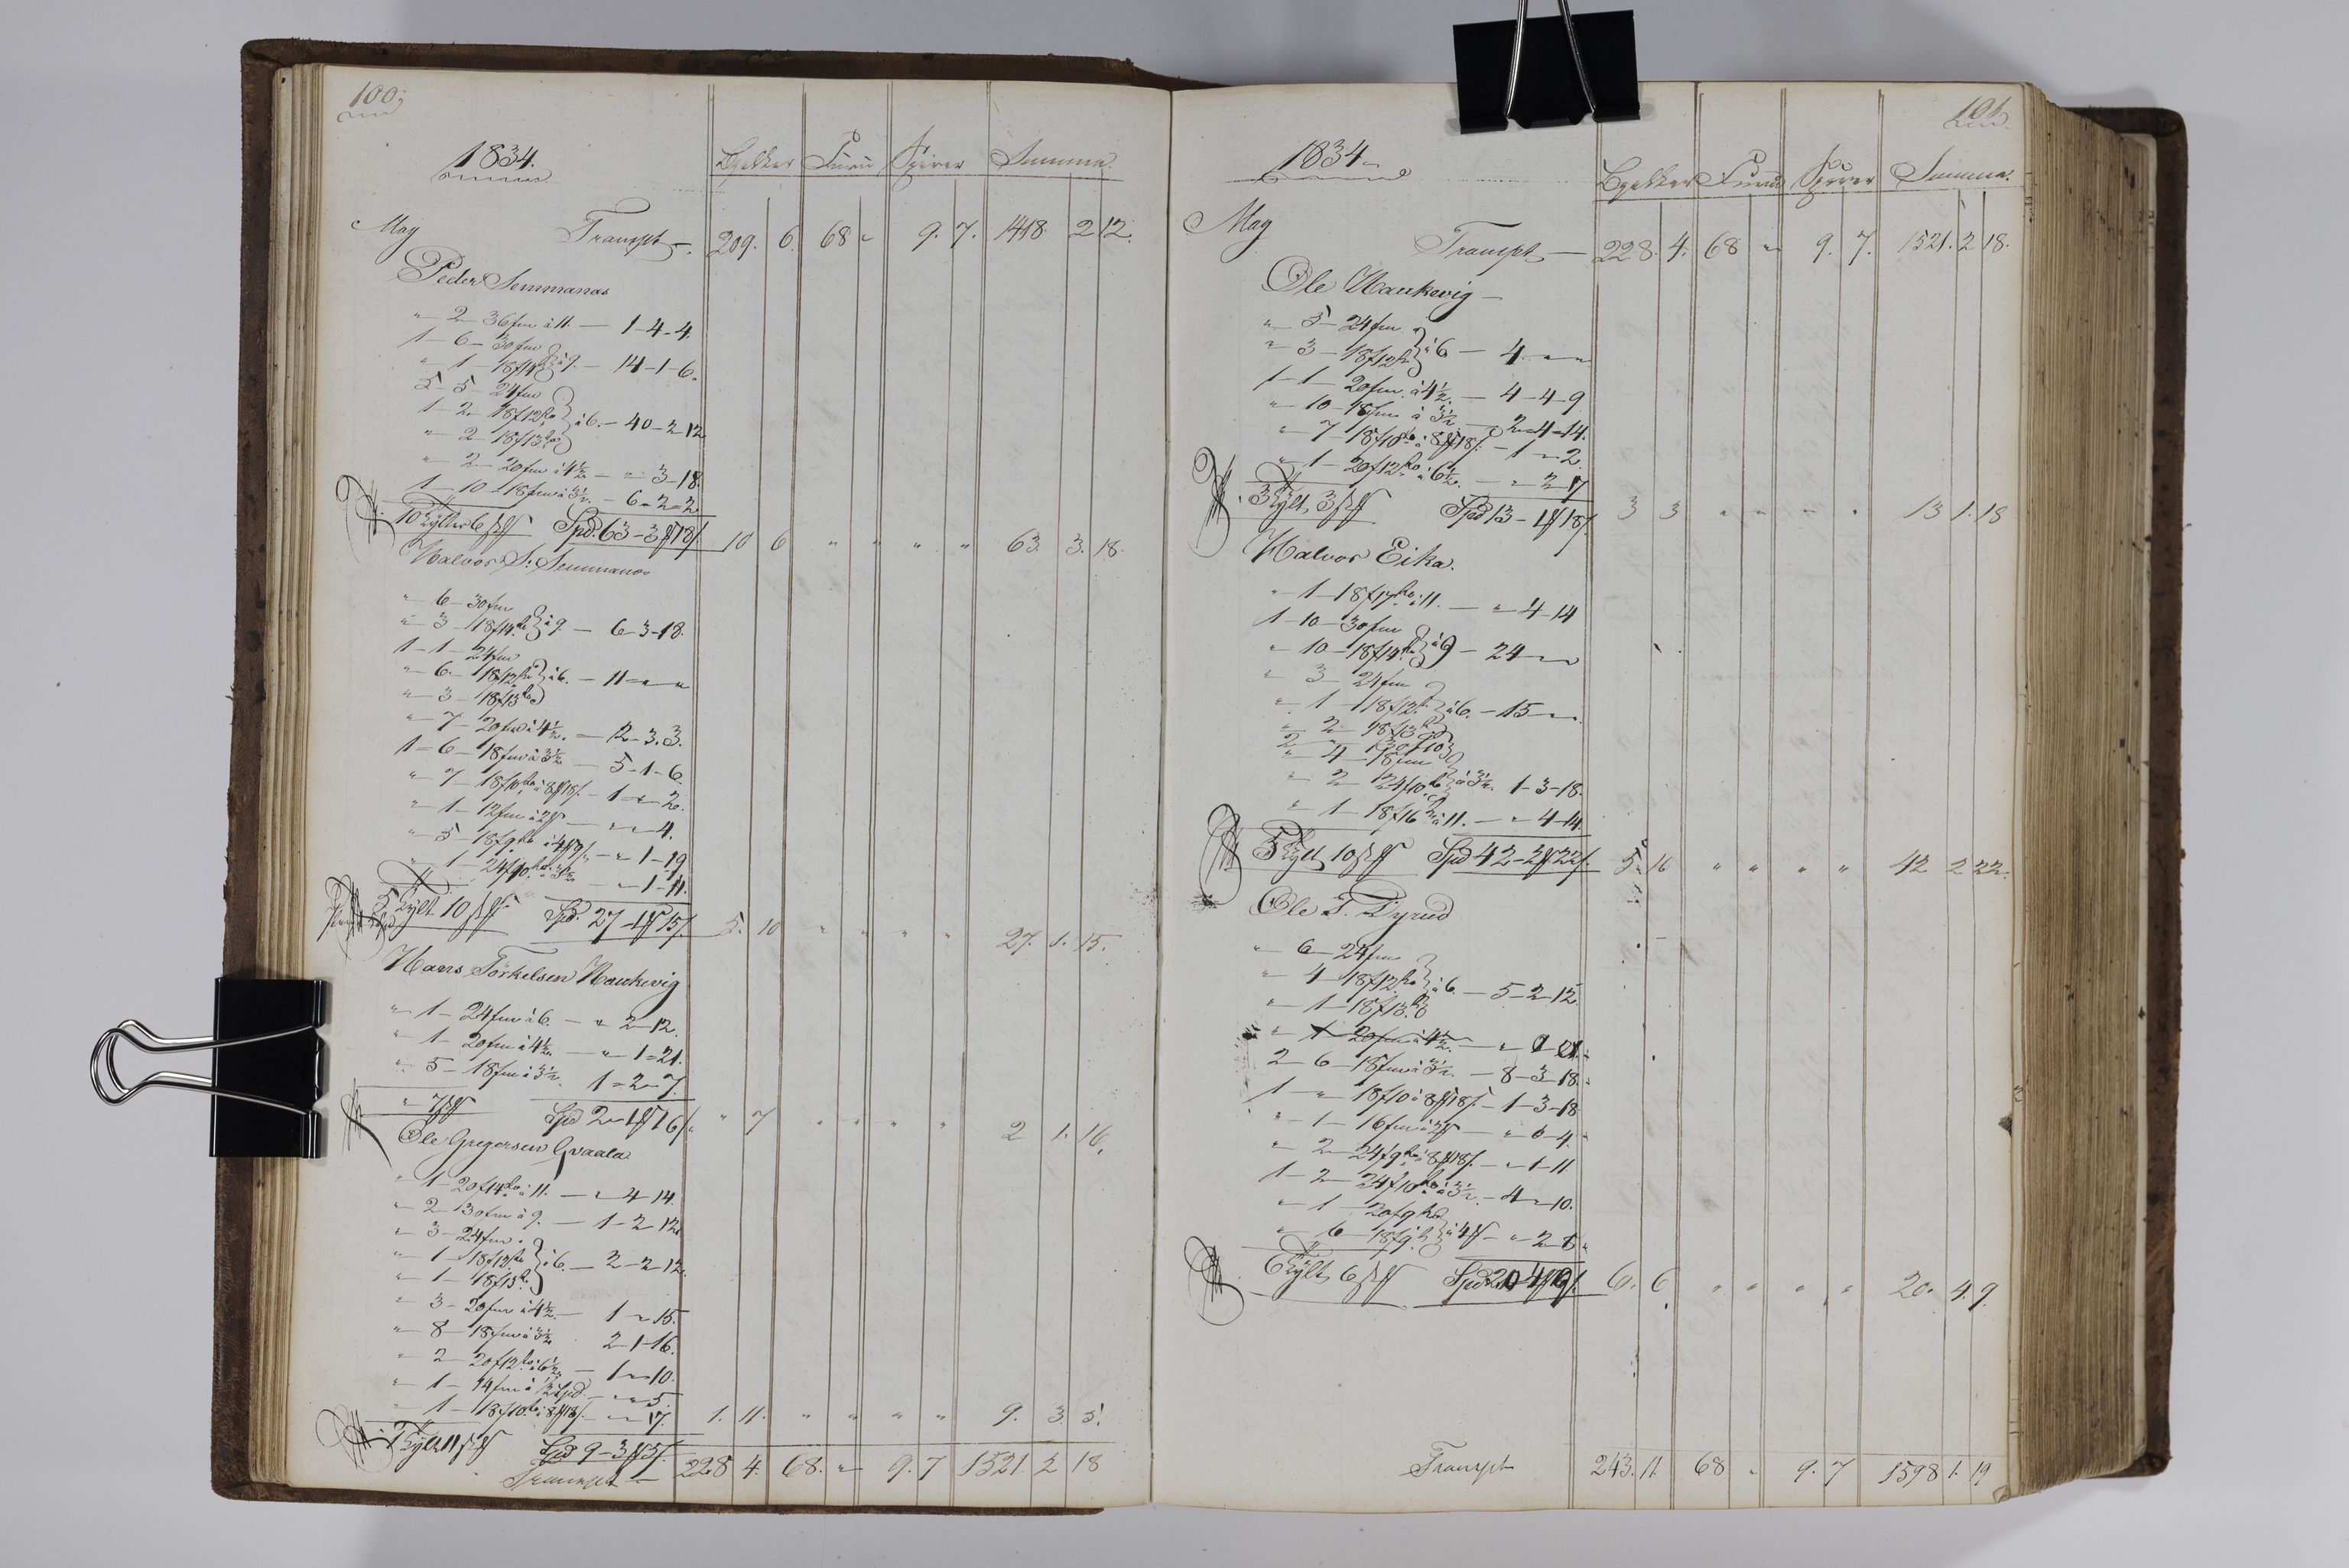 100
1834.
Bjelker Furu Spirer Summa
May Transpt — 209. 6. 68 " 9. 7. 1418 2 12.
Peder Semmanas
" 2 - 36fm à 11. — 1 - 4 - 4.
1 - 6 - 30fm
" 1 - 18f14 à 9. — 14 - 1 - 6.
5 - 5 - 24fm
1 - 2 - 18f12 à 6. — 40 - 2 12
" 2 - 18f13
" 2 - 20fm à 4½ — " 3 - 18.
1 - 10 - 18fm à 3½. — 6 - 2 - 2
10 Tylter 6 Spd. 63 - 3 18 10 6 " " " " 63. 3. 18.
Halvor S: Semmanas
" 6 - 30fm
" 3 - 18f14 à 9. — 6 - 3 - 18.
1 - 1 - 24fm
" 6 - 18f12 à 6. — 11 " "
" 3 - 18f13
" 7 - 20fm à 4½. — 2 - 3. 3.
1 - 6 - 18fm à 3½ — 5 - 1 - 6.
" 7 - 18f10 à 8 18 - 1 " 2.
" 1 - 12fm à 2 — " " 4.
" 5 - 18f9 à 4 — " 1 - 19
" 1 - 24f10 à 3½ — " 1 - 11.
5 Tylt 10 Spd. 27 - 1 15 5. 10 " " " " 27. 1. 15.
Hans Törkelsen Haukevig
" 1 - 24fm à 6. — " 2 - 12.
" 1 - 20fm à 4½. — " 1 - 21.
" 5 - 18fm à 3½. 1 - 2 - 7.
" 7 Spd 2 - 1 16 " 7 " " " " 2 1. 16.
Ole Gregersen Gvaala
" 1 - 20f14 à 11. — " 4 14.
" 2 - 30fm à 9. — 1 - 2 12
" 3 - 24fm
" 1 - 18f12 à 6. — 2 - 2 12.
" 1 - 18f13
" 3 - 20fm à 4½ — 1 " 15.
" 8 - 18fm à 3½ 2 - 1 - 16.
" 2 - 20f12 à 6½ — 1 " 10.
" 1 - 14fm à ½ Spd. — " " 5.
" 1 - 18f10 à 8 18 — " " 17. 1. 11. " " " " 9. 3. 5.
1 Tylt 11 Spd 9 - 3 5
Transpt — 228 4. 68. " 9. 7 1521. 2 18
101
1834
Bjelker Furu Spirer Summa.
May Transpt — 228. 4. 68 " 9. 7. 1521. 2 18.
Ole Haukevig —
" 5 - 24fm
" 3 - 18f12 à 6 — 4 " "
1 - 1 - 20fm à 4½. — 4 - 4 - 9
" 10 - 18fm à 3½. — 2 - 4 - 14.
" 7 - 18f10 à 8 18 - 1 " 2.
" 1 - 20f12 à 6½. — " 2 - 17
3 Tylt 3 Spd 13 - 1 18 3 3 " " " " 13 1. 18
Halvor Eika.
" 1 - 18f17 à 11. — " 4 - 14
1 - 10 - 30fm
" 10 - 18f14 à 9 — 24 " "
" 3 - 24fm
" 1 - 18f12 à 6. — 15 " "
" 2 - 18f13
" 4 - 18fm
" 2 - 24f10 à 3½. 1 - 3 - 18.
" 1 - 18f16 à 11. — " 4 - 14.
5 Tylt 10 Spd 42 - 2 22 5. 10 " " " " 42 2 22.
Ole T. Tyrud
" 6 - 24fm
" 4 - 18f12 à 6. — 5 - 2 - 12
" 1 - 18f13
" 1 - 20fm à 4½. — "
2 - 6 - 18fm à 3½. — 8 - 3 - 18.
1 - " 18f10 à 8 18 — 1 - 3 - 18
" 1 - 16fm à 2 — " 0 - 4.
" 2 - 24f9 à 8 18 — " 1 - 11
1 - 2 - 24f10 à 3½. — 4 " 10.
" 1 - 20f9
" 6 - 18f9 à 4 — " 2 - 8
6 Tylt 6 Spd 20 4 9 6. 6. " " " " 20. 4. 9.
Transpt 243. 11. 68 " 9. 7 1598 1. 19